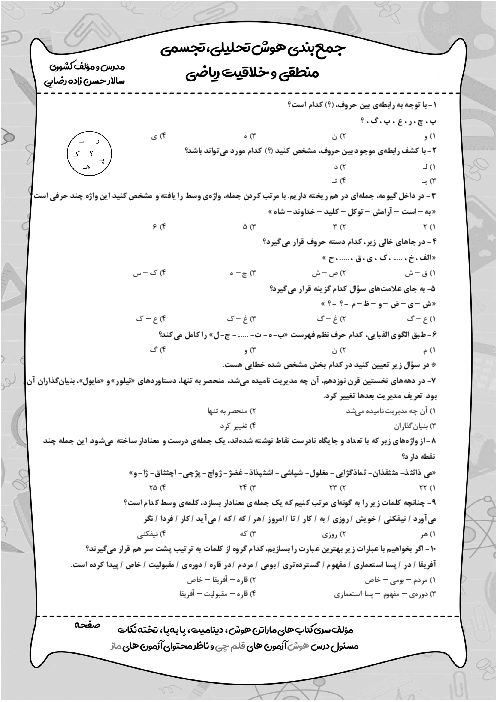 جمع‌بندی هوش تحلیلی، تجسمی
منطقی و خلاقیت ریاضی
مدرس و مؤلف کشوری
سالار حسن زاده رضایی
۱- با توجه به رابطه‌ی بین حروف، (؟) کدام است؟
پ ، چ ، ر ، ع ، پ ، گ ، ؟
۱) و ۲) ن ۳) ه ۴) ی
۲- با کشف رابطه‌ی موجود بین حروف، مشخص کنید (؟) کدام مورد می‌تواند باشد؟
۱) لـ ۲) د
۳) یـ ۴) تـ
۳- در داخل گیومه، جمله‌ای در هم ریخته داریم. با مرتب کردن جمله، واژه‌ی وسط را یافته و مشخص کنید این واژه چند حرفی است؟
«به – است – آرامش – توکل – کلید – خداوند – شاه »
۱) ۲ ۲) ۳ ۳) ۵ ۴) ۶
۴- در جاهای خالی زیر، کدام دسته حروف قرار می‌گیرد؟
«الف ، خ ، ..... ، ک ، ی ، ق ، ..... ، ح »
۱) ق – ش ۲) ص – ش ۳) چ – ه ۴) ک – س
۵- به جای علامت‌های سؤال کدام گزینه قرار می‌گیرد؟
«ش – ی – ض – و – ظ – م - ؟ - ؟ »
۱) ع – گ ۲) غ – گ ۳) غ – ک ۴) ع – ک
۶- طبق الگوی الفبایی، کدام حرف نظم فهرست «ب- ه - ت- ..... - ج- ل» را کامل می‌کند؟
۱) م ۲) ن ۳) و ۴) گ
* در سؤال زیر تعیین کنید در کدام بخش مشخص شده خطایی هست.
۷- در دهه‌های نخستین قرن نوزدهم، آن چه مدیریت نامیده می‌شد، منحصر به تنها، دستاوردهای «تیلور» و «مایول»، بنیان‌گذاران آن
بود. تعریف مدیریت بعدها تغییر کرد.
۱) آن چه مدیریت نامیده می‌شد ۲) منحصر به تنها
۳) بنیان‌گذاران ۴) تغییر کرد
۸- از واژه‌های زیر که با تعداد و جایگاه نادرست نقاط نوشته شده‌اند، یک جمله‌ی درست و معنادار ساخته می‌شود. این جمله چند
نقطه دارد؟
۱) ۲۲ ۲) ۲۳ ۳) ۲۴ ۴) ۲۵
۹- چنانچه کلمات زیر را به گونه‌ای مرتب کنیم که یک جمله‌ی معنادار بسازد، کلمه‌ی وسط کدام است؟
می‌آورد / نیفکنی / خویش / روزی / به / کار / تا / امروز / هر / که / که / می‌آید / کار / فردا / نگر
۱) هر ۲) روزی ۳) که ۴) نیفکنی
۱۰- اگر بخواهیم با عبارات زیر بهترین عبارت را بسازیم، کدام گروه از کلمات به ترتیب پشت سر هم قرار می‌گیرند؟
آفریقا / در / پسا استعماری / مفهوم / گسترده‌تری / بومی / مردم / در قاره / دوره‌ی / مقبولیت / خاص / پیدا کرده است.
۱) مردم – بومی – خاص ۲) قاره – آفریقا – خاص
۳) دوره‌ی – مفهوم – پسا استعماری ۴) قاره – مقبولیت – آفریقا
مؤلف سری کتاب های ماراتن هوش، دینامیت، پایه‌یا، تخته نکات
صفحه
مسئول درس هوش آزمون های قلم چی و ناظر محتوای آزمون های ماز